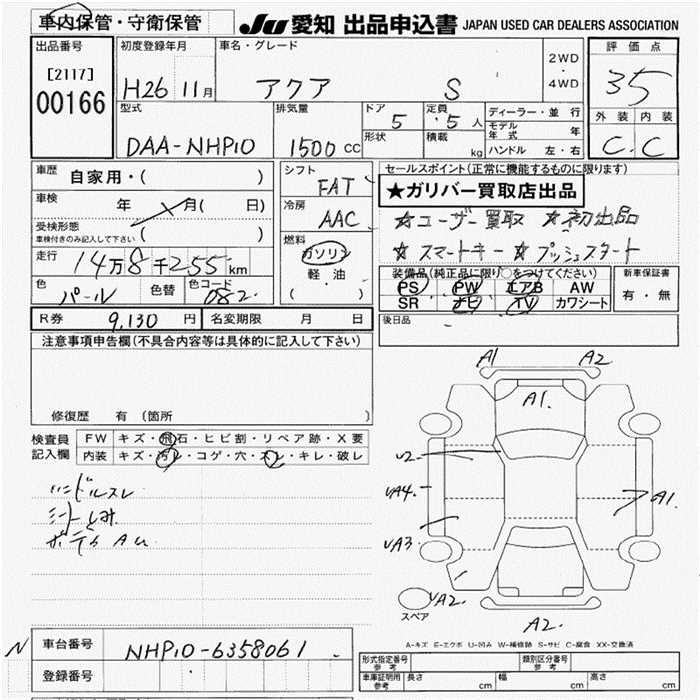 車内保管・守衛保管
JU 愛知 出品申込書 JAPAN USED CAR DEALERS ASSOCIATION
出品番号 初度登録年月 車名・グレード 2WD・4WD 評価点
[2117]
00166 H26 11月 アクア S 35
型式 排気量 ドア 定員 ディーラー・並行 外装 内装
DAA-NHP10 1500 CC 5 5人 モデル年式 年 C C
形状 積載 kg ハンドル 左・右
車歴 自家用・( ) シフト FAT セールスポイント(正常に機能するものに限ります)
★ガリバー買取店出品
車検 年 月( 日) 冷房 AAC ☆ユーザー買取 ☆初出品
受検形態 車検付きのみ記入して下さい ( )
☆スマートキー ☆プッシュスタート
走行 14万8千255km 燃料 ガソリン 軽油 ( )
装備品(純正品に限り○をつけてください) 新車保証書
PS PW エアB AW 有・無
色 パール 色替 色コード 082
SR ナビ TV カワシート
R券 9,130円 名変期限 月 日 後日品
注意事項申告欄(不具合内容等は具体的に記入して下さい)
修復歴 有 (箇所 )
検査員記入欄 FW キズ・飛石・ヒビ割・リペア跡・X要
内装 キズ・汚レ・コゲ・穴・スレ・キレ・破レ
A1 A2
A1.
U2
UA4
A1.
UA3
UA2.
A2.
スペア
ハンドルスレ
シートしみ
A-キズ E-エクボ U-凹み W-補修跡 S-サビ C-腐食 XX-交換済
N 車台番号 NHP10-6358061
登録番号
形式指定番号 参考 類別区分番号 参考
車庫証明用 参考 長さ cm 幅 cm 高さ cm